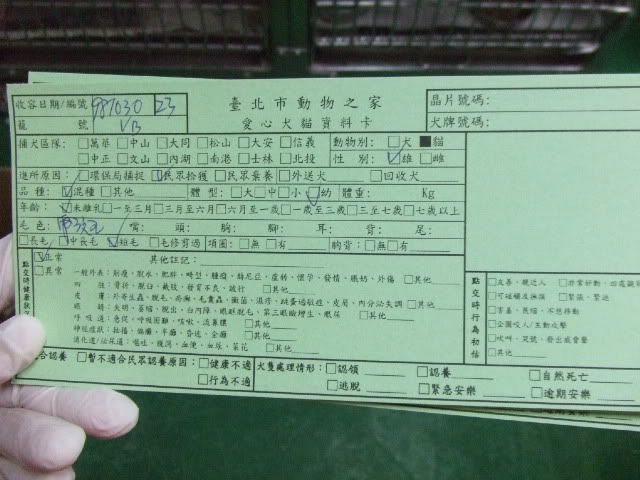 收容日期/編號 981030 23 臺北市動物之家 晶片號碼:
籠 號 VB 愛心犬貓資料卡 犬牌號碼:
捕犬區隊: □萬華 □中山 □大同 □松山 □大安 □信義 動物別: □犬 ■貓
□中正 □文山 □內湖 □南港 □士林 □北投 性 別: ☑雄 □雌
進所原因: □環保局捕捉 ☑民眾拾獲 □民眾棄養 □外送犬 □回收犬
品 種: ☑混種 □其他 體 型: □大 □中 □小 ☑幼 體重: Kg
年齡: ☑未離乳 □一至三月 □三月至六月 □六月至一歲 □一歲至三歲 □三至七歲 □七歲以上
毛 色: 嘴: 頭: 胸: 腳: 耳: 背: 足:
□長毛 □中長毛 ☑短毛 □毛修剪過 項圈: □無 □有 胸背: □無 □有
點交時健康狀況 ☑正常 其他註記:
□異常 一般外表: 削瘦、脫水、肥胖、畸型、腫瘤、赫尼亞、虛弱、懷孕、發情、脹奶、外傷 □其他
四 肢: 骨折、脫臼、截肢、發育不良、跛行 □其他
皮 膚: 外寄生蟲、脫毛、黴菌、濕疹、跳蚤過敏症、皮屑、內分泌失調 □其他
眼 睛: 失明、萎縮、脫出、白內障、眼睫脫毛、第三眼瞼增生、眼屎 □其他
呼吸道: 急促、呼吸困難、咳嗽、流鼻膿 □其他
神經症狀: 抽搐、癱瘓、半癱、昏迷、全癱 □其他
消化道/泌尿道: 嘔吐、穢瀉、血便、血尿、菜花 □其他
點交時行為初估 □友善、親近人 □非常好動、四處
□可碰觸及撫摸 □緊張、緊迫
□害羞、畏縮、不想移動
□企圖咬人/主動攻擊
□吠叫、哭號、發出威脅聲
□其他
合認養 □暫不適合民眾認養原因: □健康不適 犬隻處理情形: □認領 □認養 □自然死亡
□行為不適 □逃脫 □緊急安樂 □逾期安樂